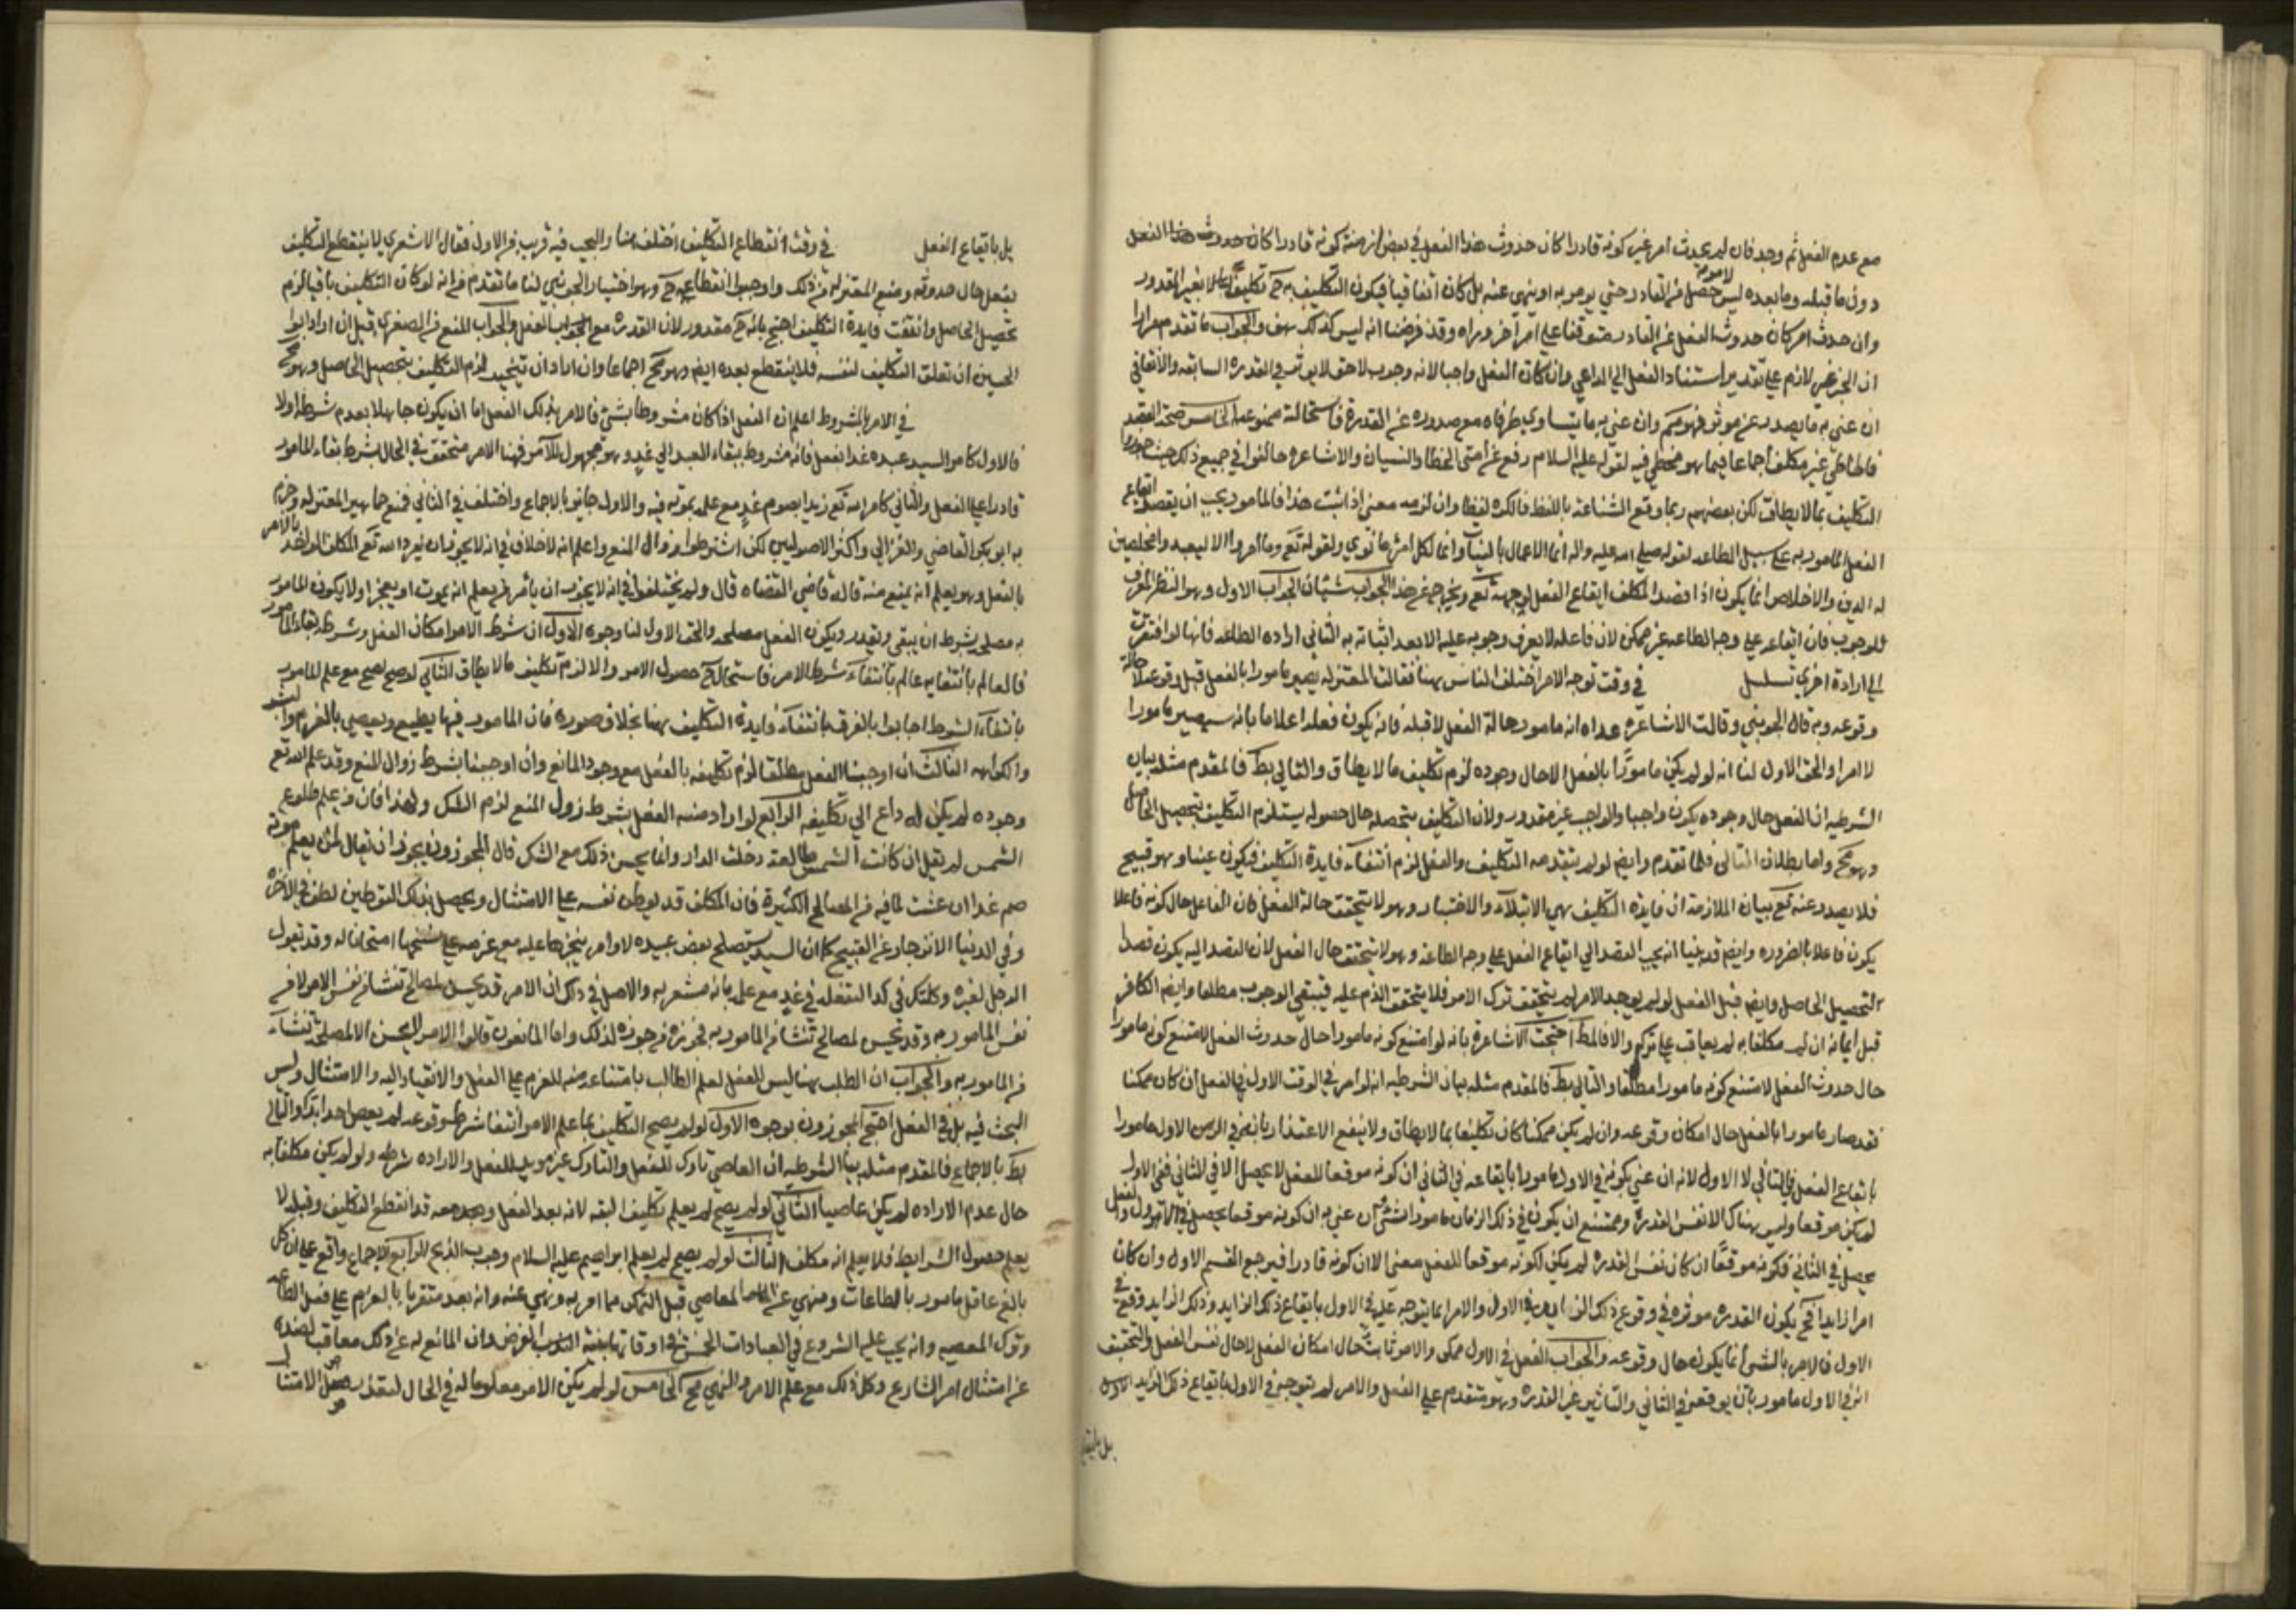 مع عدم الفعل ثم وجد فان لم يحدث امر غير كونه قادرا كان حدوث هذا الفعل في بعض ازمنة كونه قادرا كان حدوث هذا الفعل
دون ما قبله وما بعده ليس لامر حصل من القادر حتى يومر به او ينهى عنه بل كان اتفاقيا فيكون التكليف به ح تكليفا بغير المقدور
وان حدث امر كان حدوث الفعل عن القادر متوقفا على امر اخر وراه وقد فرضنا انه ليس كذلك هف والجواب ما تقدم مرارا
ان الجبر غير لازم على تقدير استناد الفعل الى الداعي وان كان الفعل واجبا لانه وجوب لاحق لا يوثر في القدرة السابقه والاتفاقي
ان عنى به ما يصدر عن موثر فهو مسلم وان عنى به ما يتساوى طرفاه مع صدوره عن القدرة فاستحالته ممنوعه الخامس صحة القصد
فالخاطي غير مكلف اجماعا فيما هو مخطي فيه لقوله عليه السلام رفع عن امتي الخطا والنسيان والاشاعره خالفوا في جميع ذلك حيث جوزوا
التكليف بما لا يطاق لكن بعضهم ربما وقع الشناعة باللفظ فالكره لفظا وان لزمه معنى اذا ثبت هذا فالمامور يجب ان يقصد ايقاع
الفعل المامور به على سبيل الطاعه لقوله صلى الله عليه واله انما الاعمال بالنيات وانما لكل امرئ ما نوى ولقوله تع وما امروا الا ليعبدوا الله مخلصين
له الدين والاخلاص انما يكون اذا قصد المكلف ايقاع الفعل لوجهه تع ويخرج عن هذا الجواب شيئان الجواب الاول وهو النظر المعرف
للوجوب فان ايقاعه على وجه الطاعه غير ممكن لان فاعله لا يعرف وجوبه عليه الا بعد اتيانه به الثاني ارادة الطاعه فانها لو افتقرت
الى ارادة اخرى تسلسل في وقت توجه الامر اختلف الناس هنا فقالت المعتزله يصير مامورا بالفعل قبل وقوعه لا حالة
وقوعه وبه قال الجويني وقالت الاشاعره عداه انه مامور حالة الفعل لا قبله فانه يكون فعله اعلاما بانه سيصير مامورا
لا امرا والحق الاول لنا انه لو لم يكن مامورا بالفعل الا حال وجوده لزم تكليف ما لا يطاق والتالي بط فالمقدم مثله بيان
الشرطيه ان الفعل حال وجوده يكون واجبا والواجب غير مقدور ولان التكليف بتحصيله حال حصوله يستلزم التكليف بتحصيل الحاصل
وهو مح واما بطلان التالي فلما تقدم وايضا لو لم يتقدم التكليف والفعل لزم انتفاء فايدة التكليف فيكون عبثا وهو قبيح
فلا يصدر عنه تع بيان الملازمة ان فايدة التكليف هي الابتلاء والاختبار وهو لا يتحقق حالة الفعل فان الفاعل حال كونه فاعلا
يكون فاعلا بالضروره وايضا قد بينا انه يجب القصد الى ايقاع الفعل على وجه الطاعة وهو لا يتحقق حال الفعل لان القصد اليه يكون قصدا
لتحصيل الحاصل وايضا قبل الفعل لو لم يوجد الامر لم يتحقق ترك الامر فلا يتحقق الذم عليه فينتفي الوجوب مطلقا وايضا الكافر
قبل ايمانه ان لم مكلفا به لم يعاقب على تركه والا فالمط احتجت الاشاعرة بانه لو امتنع كونه مامورا حال حدوث الفعل لامتنع كونه مامورا
حال حدوث الفعل لامتنع كونه مامورا مطلقا والتالي بط فالمقدم مثله بيان الشرطيه انه لو امر في الوقت الاول بالفعل ان كان ممكنا
فقد صار مامورا بالفعل حال امكان وقوعه وان لم يكن ممكنا كان تكليفا بما لا يطاق ولا ينفع الاعتذار بانه في الزمن الاول مامورا
بايقاع الفعل في الثاني لا الاول لانه ان عني بكونه في الاول مامورا بايقاعه في الثاني ان كونه موقعا للفعل لا يحصل الا في الثاني ففي الاول
لم يكن موقعا وليس هناك الا نفس القدرة وممتنع ان يكون في ذلك الزمان مامورا بشئ وان عني به ان كونه موقعا يحصل في الاول والفعل
يحصل في الثاني فكونه موقعا ان كان نفس القدره لم يكن لكونه موقعا للفعل معنى الا ان كونه قادرا فيرجع القسم الاول وان كان
امرا زايدا فح يكون القدره موثره في وقوع ذلك الزايد في الاول والامر انما يتوجه عليه في الاول بايقاع ذلك الزايد وذلك الزايد وقع في
الاول فالامر بالشئ انما يكون حال وقوعه والجواب الفعل في الاول ممكن والامر ثابت حال امكان الفعل لا حال نفس الفعل والتحقيق
انه في الاول مامور بان يوقعه في الثاني والتاثير غير القدرة وهو متقدم على الفعل والامر لم يتوجه في الاول بايقاع ذلك الزايد الاول
بل بايقاع
بل بايقاع الفعل في وقت انقطاع التكليف اختلف هنا والبحث فيه قريب من الاول فقال الاشعري لا ينقطع التكليف
بفعل حال حدوثه ومنع المعتزلة من ذلك واوجبوا انقطاعه ح وهو اختيار الجويني لنا ما تقدم من انه لو كان التكليف باقيا لزم
تحصيل الحاصل وانتفت فايدة التكليف احتج بانه ح مقدور لان القدرة مع الفعل والجواب المنع من الصغرى قيل ان اراد ابو
الحسين ان تعلق التكليف لنفسه فلا ينقطع بعده ايضا وهو مح اجماعا وان اراد ان تنجيد لزم التكليف بتحصيل الحاصل وهو مح
في الامر بالمشروط اعلم ان الفعل اذا كان مشروطا بشئ فالامر بذلك الفعل اما ان يكون جاهلا بعدم شرطه اولا
فالاول كامر السيد عبده غدا بفعل فانه مشروط ببقاء العبد الى غد وهو مجهول للامر فهنا الامر متحقق في الحال بشرط بقاء المامور
قادرا على الفعل والثاني كامر الله تع زيدا بصوم غد مع علمه بموته فيه والاول جايز بالاجماع واختلف في الثاني فمنع جماهير المعتزله وجزم
به ابو بكر القاضي والغزالي واكثر الاصوليين لكن اشترطوا زوال المنع واعلم انه لا خلاف في انه لا يجوز ان يفرد الله تع المكلف الواحد بالامر
بالفعل وهو يعلم انه يمنع منه قاله قاضي القضاه قال ولم يختلفوا في انه لا يجوز ان يأمر من يعلم انه يموت او يعجز او لا يكون المامور
به مصلحه بشرط ان يبقى ويقدر ويكون الفعل مصلحه والحق الاول لنا وجوه الاول ان شرط الامر امكان الفعل وشرطه بقاء المامور
فالعالم بانتفايه عالم بانتفاء شرط الامر فاستحال ح حصول الامر والا لزم تكليف ما لا يطاق الثاني لو صح لصح مع علم المامور
بانتفاء الشرط اجابوا بالفرق بانتفاء فايدة التكليف هنا بخلاف صوره فان المامور فيها يطيع ويعصي بالعزم
الثالث ان اوجبنا الفعل مطلقا لزم تكليفه بالفعل مع وجود المانع وان اوجبنا بشرط زوال المنع وقد علم الله تع
وجوده لم يكن له داع الى تكليفه الرابع لو اراد منه الفعل بشرط زوال المنع لزم الشك ولهذا فان من علم طلوع
الشمس لم يقل ان كانت الشمس طالعة دخلت الدار وانما يحسن ذلك مع الشك قال المجوزون يجوز ان يقال لمن يعلم موته
صم غدا ان عشت لما فيه من المصالح الكثيرة فان المكلف قد يوطن نفسه على الامتثال ويحصل بذلك التوطين لطف في الاخرة
وفي الدنيا الانزجار عن القبيح كما ان السيد يستصلح بعض عبيده لاوامر ينجزها عليه مع عزمه على نسخها امتحانا له وقد يقول
الرجل لغيره وكلتك في كذا لتفعله في غد مع علمه بانه سيعزله والاصل في ذلك ان الامر قد يحسن لمصالح تنشا من نفس الامر لا من
نفس المامور به وقد يحسن لمصالح تنشا من المامور به فجوزه من جوزه لذلك واما المانعون قالوا الامر لا يحسن الا لمصلحة تنشاء
من المامور به والجواب ان الطلب هنا ليس للفعل لعلم الطالب بامتناعه منه للعزم على الفعل والانقياد اليه والامتثال وليس
البحث فيه بل في الفعل احتج المجوزون بوجوه الاول لو لم يصح التكليف بما علم الامر انتفا شرط وقوعه لم يعص احد ابدا والتالي
بط بالاجماع فالمقدم مثله بيان الشرطيه ان العاصي تارك للفعل والتارك غير مريد للفعل والاراده شرطه ولو لم يكن مكلفا به
حال عدم الاراده لم يكن عاصيا الثاني لو لم يصح لم يعلم تكليف البته لانه بعد الفعل ومعه قد انقطع التكليف وقبله لا
يعلم حصول الشرايط فلا يعلم انه مكلف الثالث لو لم يصح لم يعلم ابراهيم عليه السلام وجوب الذبح الرابع الاجماع واقع على ان كل
بالغ عاقل مامور بالطاعات ومنهي عن المعاصي قبل التمكن مما امر به ونهي عنه وانه يعد متقربا بالعزم على فعل الطاعه
وترك المعصيه وانه يجب عليه الشروع في العبادات الخمس في اوقاتها بنية الفرض وان المانع له عن ذلك معاقب لصده
عن امتثال امر الشارع وكل ذلك مع علم الامر والنهي مح الخامس لو لم يكن الامر معلوما له في الحال لتعذر الامتثا